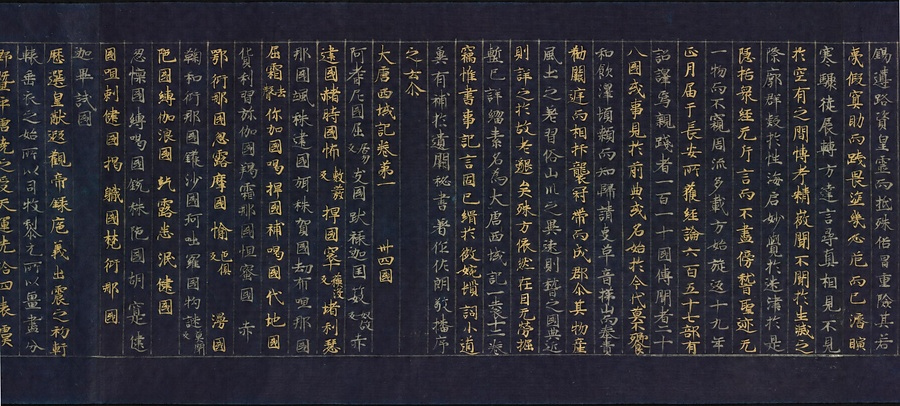 錫遵路資皇靈而抵殊俗冒重險其若
夷假冥助而踐畏塗幾必危而已濟暄
寒驟徙展轉方達言尋真相見不見
於空有之間博考精微聞不聞於生滅之
際廓群疑於性海啓妙覺於迷津於是
隱括衆經无片言而不盡傍稽聖迹无
一物而不窺周流多載方始旋返十九年
正月屆于長安所獲經論六百五十七部有
詔譯焉親踐者一百一十國傳聞者二十
八國或事見於前典或名始於今代莫不飡
和飲澤頓顙而知歸請吏革音梯山而奉賮
歡闕庭而相抃襲冠帶而成群尒其物產
風土之差習俗山川之異遠則稽之國典近
則詳之於故老邈矣殊方依然在目无勞握
槧已詳緗素名為大唐西域記一袠十二卷
竊惟書事記言固已緝於微婉瑣詞小道
冀有補於遺闕秘書著作佐郎敬播序
之云尒
大唐西域記卷第一 卅四國
阿耆尼國 屈居勿反支國 跋祿迦國 笯奴故反赤
建國 赭時國 㤄敷發反捍國 窣蘇沒反堵利瑟
那國 颯秣建國 弭秣賀國 劫布呾那國
屈霜去聲你加國 喝捍國 捕喝國 代地國
貨利習弥伽國 羯霜那國 怛蜜國 赤
鄂衍那國 忽露摩國 愉反俱漫國
鞠和衍那國 鑊沙國 珂咄羅國 拘謎莫閉反
陀國 縛伽浪國 紇露悉泯健國
忽懍國 縛喝國 銳秣陀國 胡寔健
國 呾剌健國 揭職國 梵衍那國
迦畢試國
歷選皇猷遐觀帝錄庖羲出震之初軒
轅垂衣之始所以司牧黎元所以畺畫分
野暨乎唐堯之受天運光格四表虞